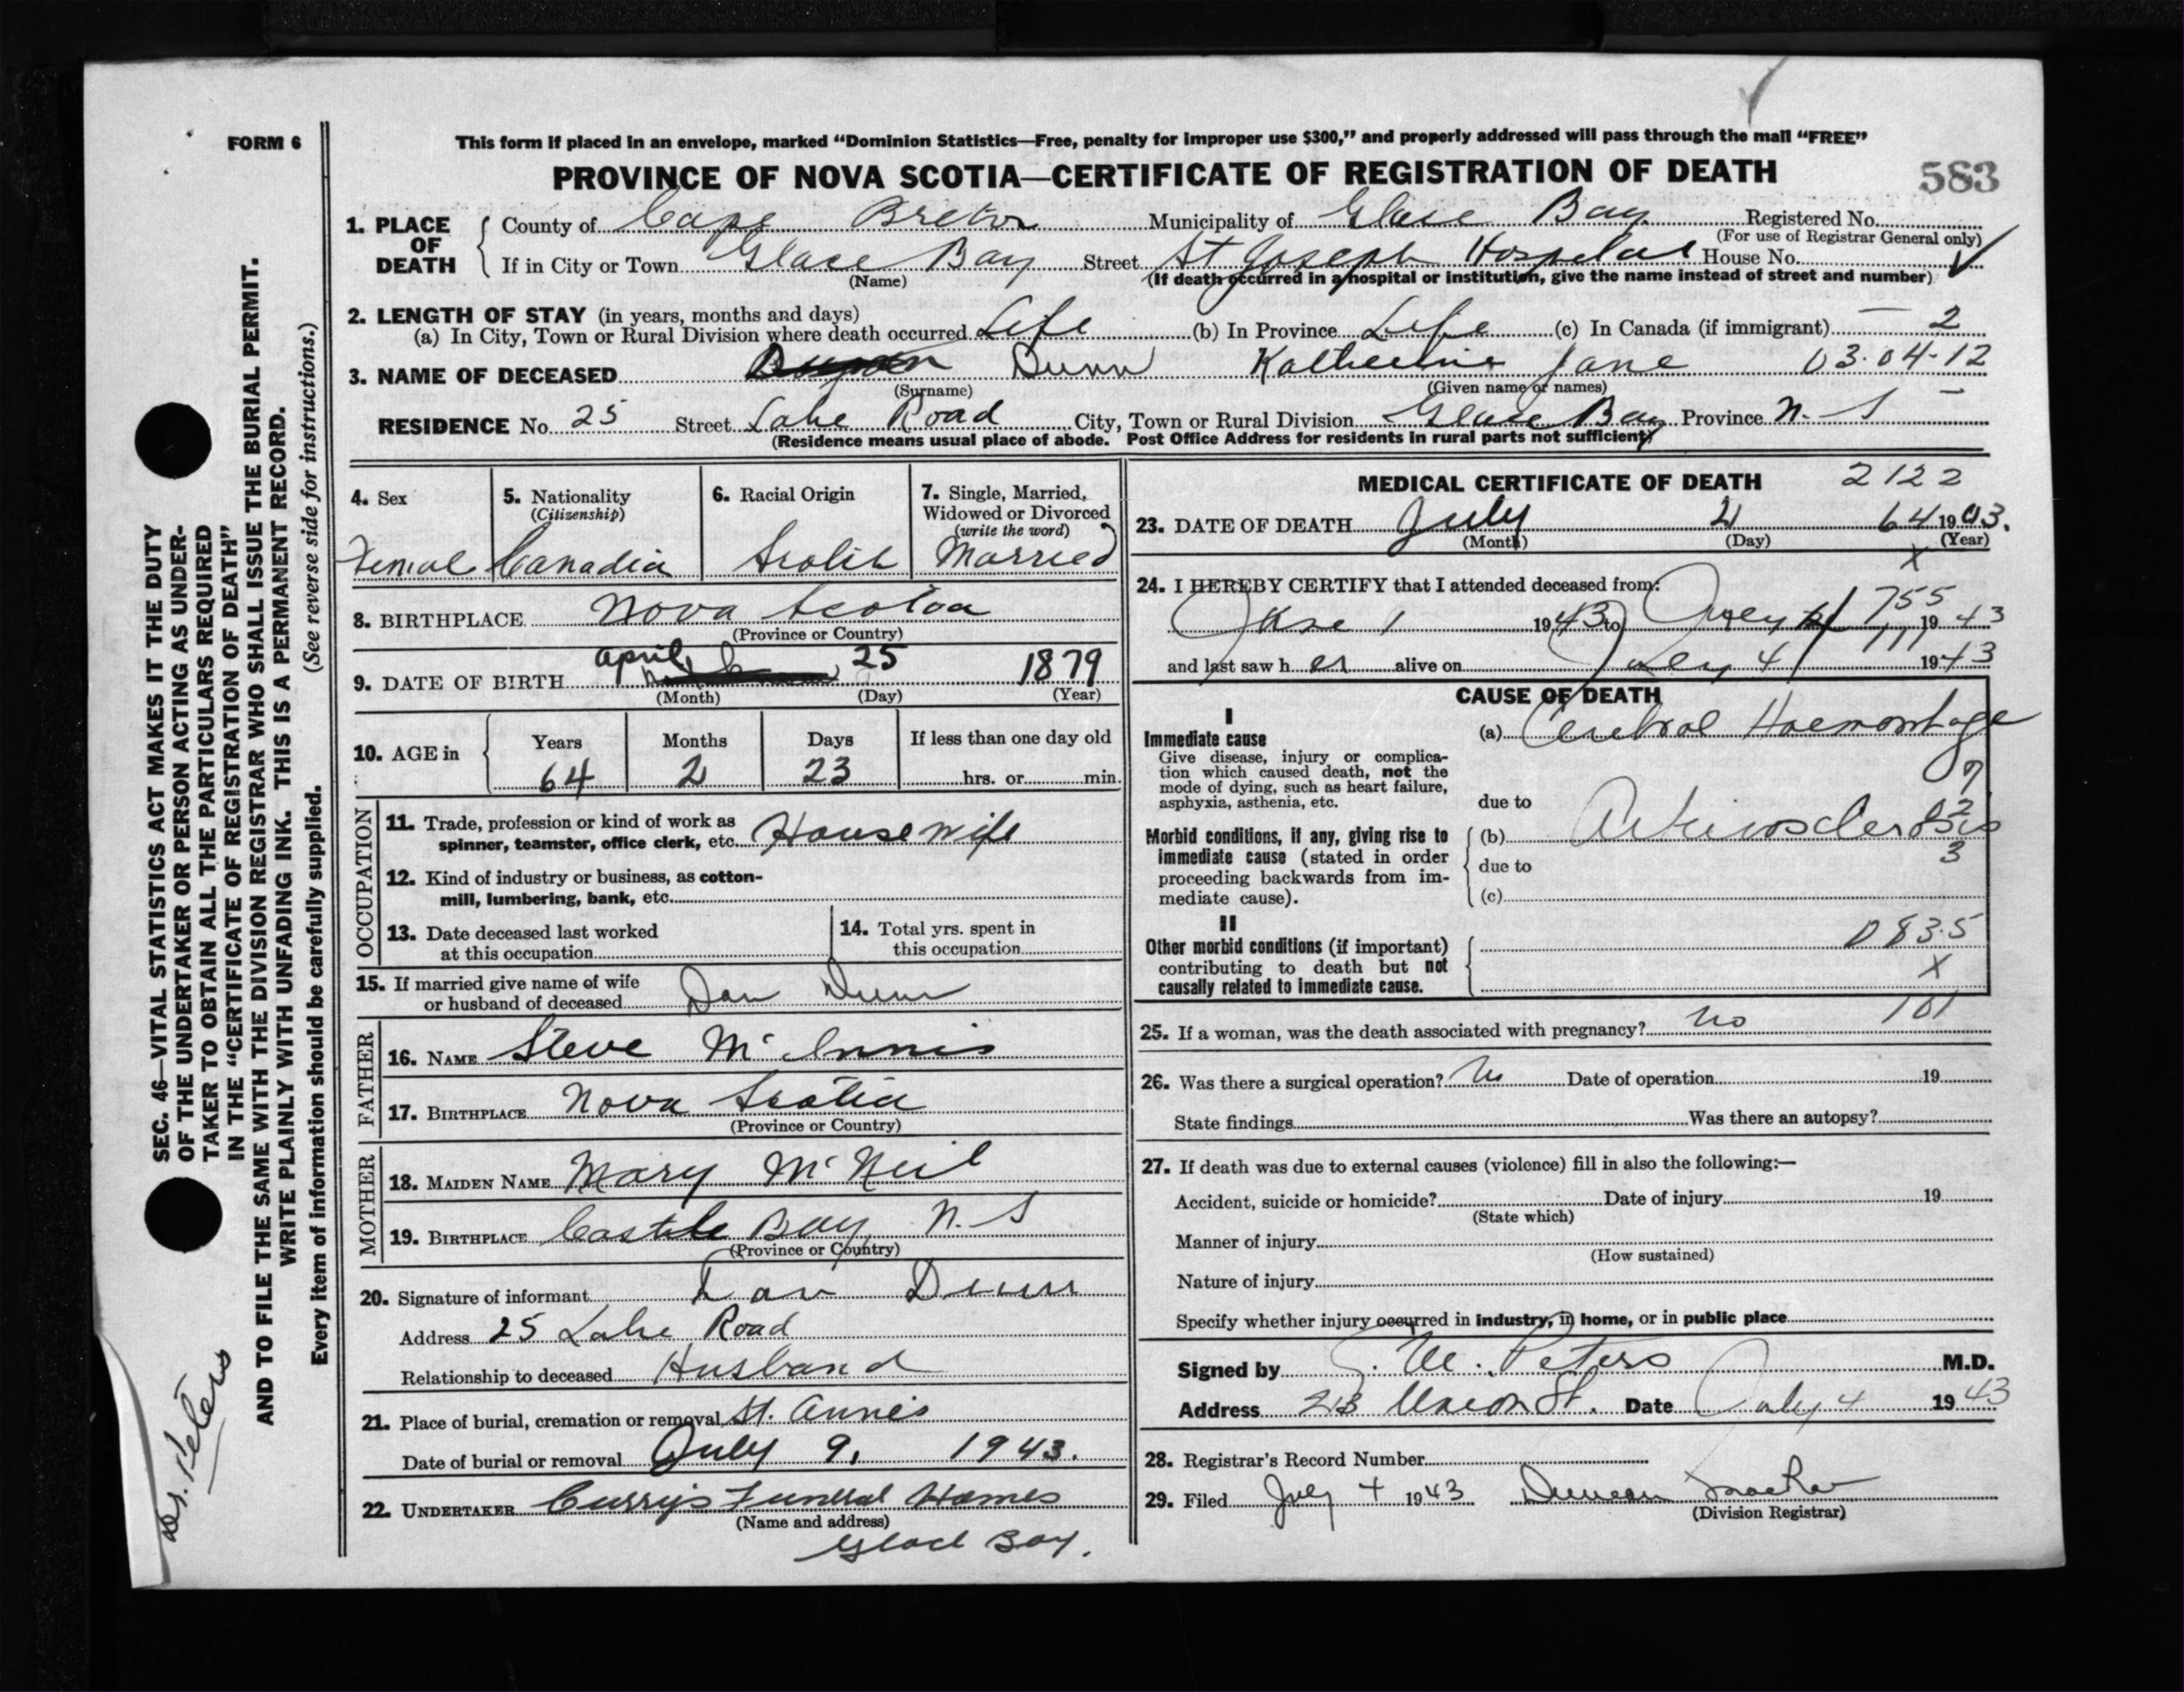 FORM 6
This form if placed in an envelope, marked “Dominion Statistics—Free, penalty for improper use $300,” and properly addressed will pass through the mail “FREE”
PROVINCE OF NOVA SCOTIA—CERTIFICATE OF REGISTRATION OF DEATH
583
1. PLACE OF DEATH
County of Cape Breton Municipality of Glace Bay Registered No.
(For use of Registrar General only)
If in City or Town Glace Bay Street St Joseph Hospital House No.
(Name) (If death occurred in a hospital or institution, give the name instead of street and number)
2. LENGTH OF STAY (in years, months and days)
(a) In City, Town or Rural Division where death occurred Life (b) In Province Life (c) In Canada (if immigrant) — 2
3. NAME OF DECEASED Dunn Katherine Jane 03-04-12
(Surname) (Given name or names)
RESIDENCE No. 25 Street Lake Road City, Town or Rural Division Glace Bay Province N. S
(Residence means usual place of abode. Post Office Address for residents in rural parts not sufficient)
4. Sex 5. Nationality 6. Racial Origin 7. Single, Married,
(Citizenship) Widowed or Divorced
(write the word)
Female Canadian Scotch Married
8. BIRTHPLACE Nova Scotia
(Province or Country)
9. DATE OF BIRTH April 25 1879
(Month) (Day) (Year)
10. AGE in Years Months Days If less than one day old
64 2 23 hrs. or min.
OCCUPATION
11. Trade, profession or kind of work as
spinner, teamster, office clerk, etc. Housewife
12. Kind of industry or business, as cotton-
mill, lumbering, bank, etc.
13. Date deceased last worked
at this occupation
14. Total yrs. spent in
this occupation
15. If married give name of wife
or husband of deceased Dan Dunn
FATHER
16. NAME Steve McInnis
17. BIRTHPLACE Nova Scotia
(Province or Country)
MOTHER
18. MAIDEN NAME Mary McNeil
19. BIRTHPLACE Castle Bay, N. S
(Province or Country)
20. Signature of informant Dan Dunn
Address 25 Lake Road
Relationship to deceased Husband
21. Place of burial, cremation or removal St. Annes
Date of burial or removal July 9, 1943.
22. UNDERTAKER Curry's Funeral Homes
(Name and address)
Glace Bay.
MEDICAL CERTIFICATE OF DEATH 2122
23. DATE OF DEATH July 64 19
(Month) (Day) (Year)
X
24. I HEREBY CERTIFY that I attended deceased from:
755
June 1 1943 to July 1943
111
and last saw her alive on July 4 1943
CAUSE OF DEATH
I
Immediate cause
Give disease, injury or complica-
tion which caused death, not the
mode of dying, such as heart failure,
asphyxia, asthenia, etc.
(a) Cerebral Haemorrhage
due to
Morbid conditions, if any, giving rise to
immediate cause (stated in order
proceeding backwards from im-
mediate cause).
(b) Arteriosclerosis
3
due to
(c)
II
Other morbid conditions (if important)
contributing to death but not
causally related to immediate cause.
083.5
X
25. If a woman, was the death associated with pregnancy? No 101
26. Was there a surgical operation? No Date of operation 19
State findings Was there an autopsy?
27. If death was due to external causes (violence) fill in also the following:—
Accident, suicide or homicide? Date of injury 19
(State which)
Manner of injury
(How sustained)
Nature of injury
Specify whether injury occurred in industry, in home, or in public place
Signed by M. Peters M.D.
Address Union St. Date July 4 1943
28. Registrar's Record Number
29. Filed July 4 1943 Duncan
(Division Registrar)
SEC. 46—VITAL STATISTICS ACT MAKES IT THE DUTY
OF THE UNDERTAKER OR PERSON ACTING AS UNDER-
TAKER TO OBTAIN ALL THE PARTICULARS REQUIRED
IN THE “CERTIFICATE OF REGISTRATION OF DEATH”
AND TO FILE THE SAME WITH THE DIVISION REGISTRAR WHO SHALL ISSUE THE BURIAL PERMIT.
WRITE PLAINLY WITH UNFADING INK. THIS IS A PERMANENT RECORD.
Every item of information should be carefully supplied. (See reverse side for instructions.)
Dr. Peters